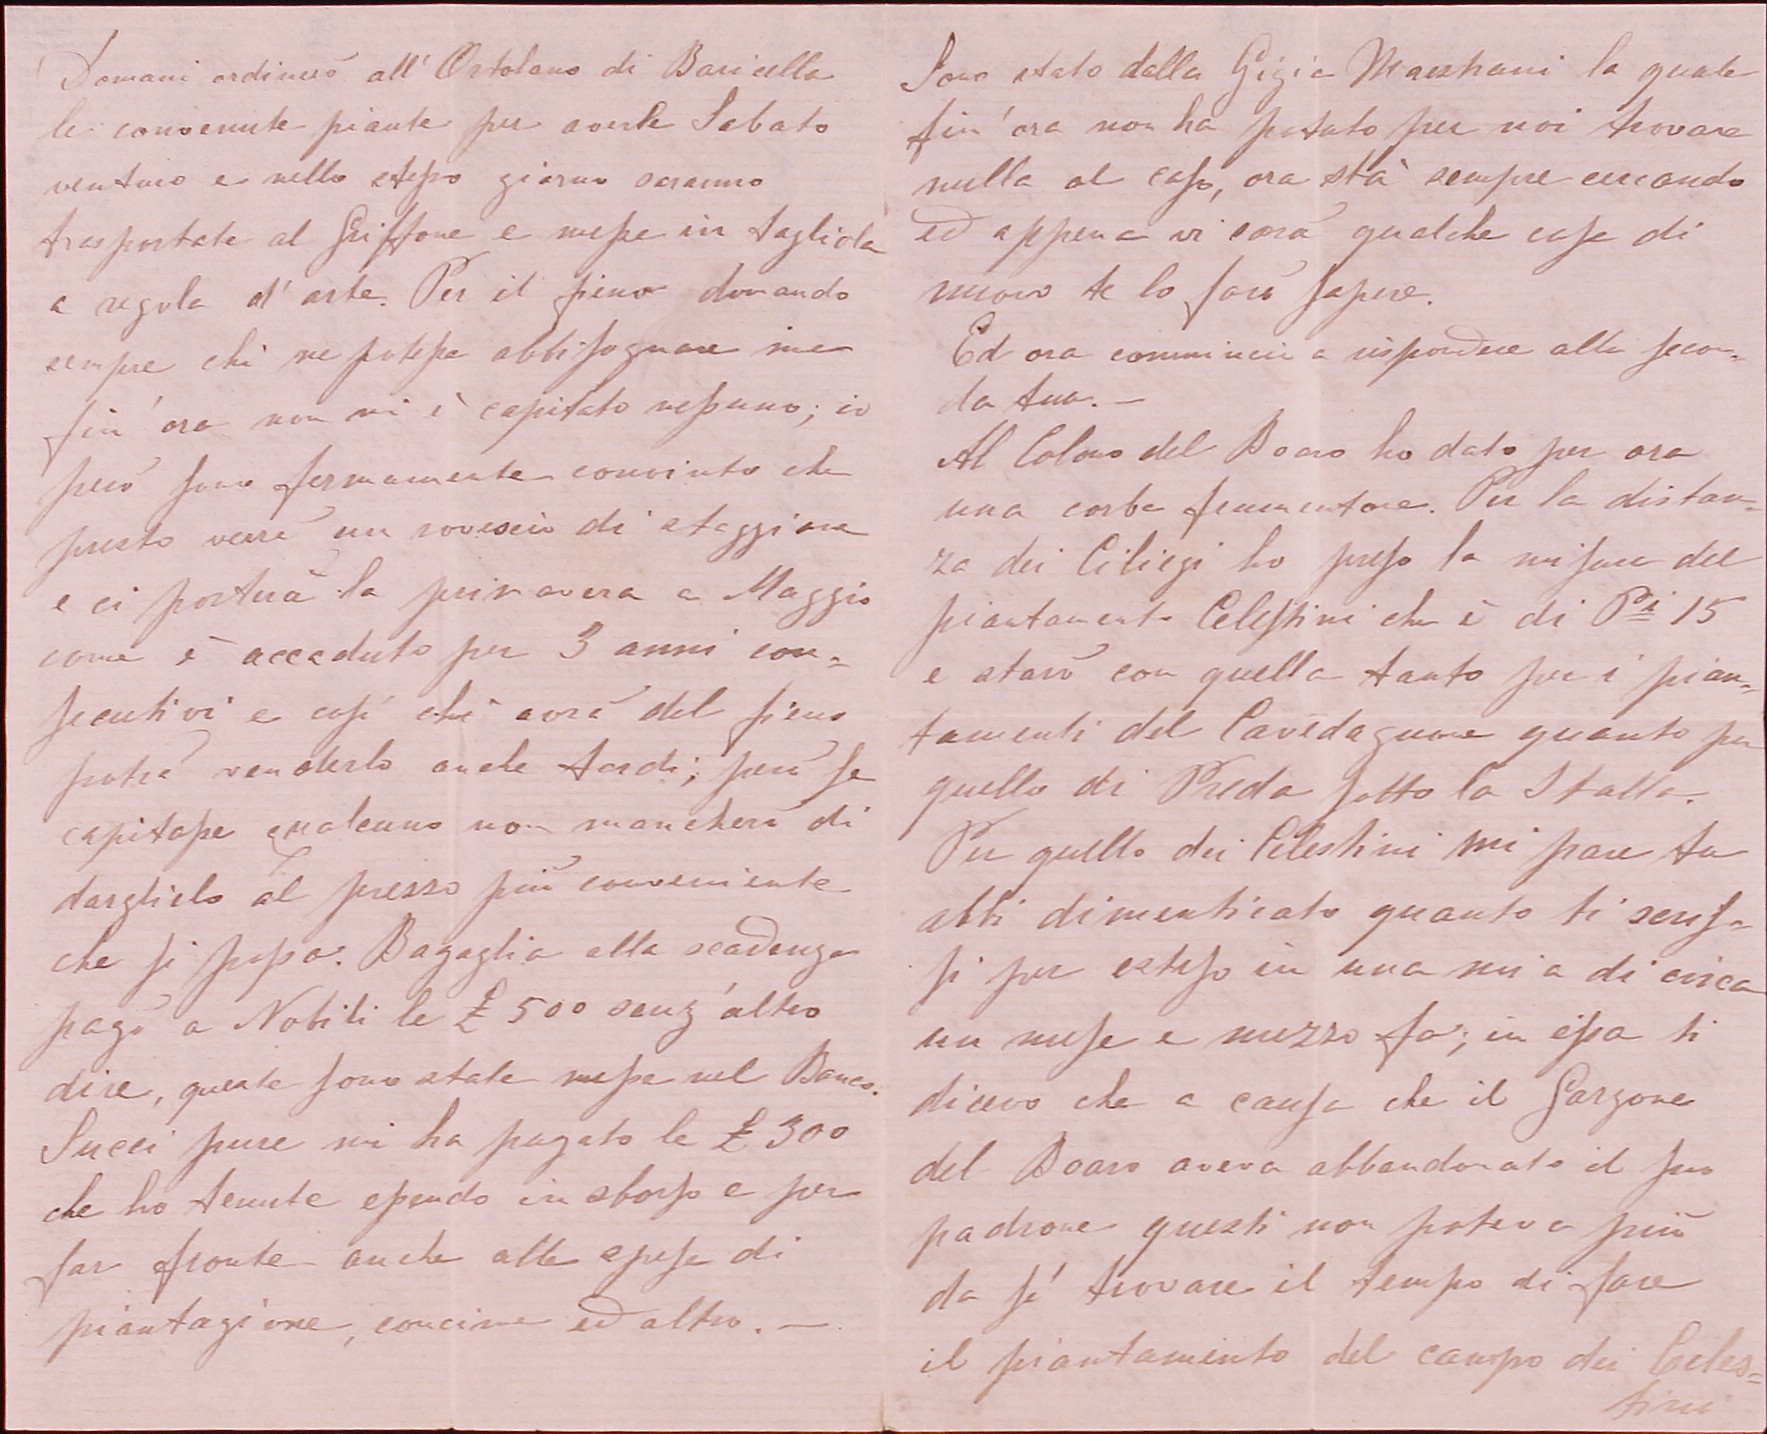 Domani ordinerò all'Ortolano di Baricella
le convenute piante per averle Sabato
venturo e nello stesso giorno saranno
trasportate al Griffone e messe in tagliola
a regola d'arte. Per il fieno domando
sempre chi ne potesse abbisognare ma
fin'ora non mi è capitato nessuno; io
però sono fermamente convinto che
presto verrà un rovescio di staggione
e ci porterà la primavera a Maggio
come è accaduto per 3 anni con=
secutivi e così chi avrà del fieno
potrà venderlo anche tardi; però se
capitasse qualcuno non mancherò di
darglielo al prezzo più conveniente
che si possa. Bagaglia alla scadenza
pagò a Nobili le £ 500 senz'altro
dire, queste sono state messe nel Banco.
Succi pure mi ha pagato le £ 300
che ho tenute essendo in sborso e per
far fronte anche alle spese di
piantagione, concime ed altro. —
Sono stato dalla Gigia Maestrani la quale
fin'ora non ha potuto per noi trovare
nulla al caso, ora stà sempre cercando
ed appena vi sarà qualche cosa di
nuovo te lo farò sapere.
Ed ora commincio a rispondere alla secon=
da tua. —
Al Colono del Boaro ho dato per ora
una corba frumentone. Per la distan=
za dei Ciliegi ho preso la misura del
piantamento Celestini che è di Pi 15
e starò con quella tanto per i pian=
tamenti del Cavedagnone quanto per
quello di Preda sotto la Stalla.
Per quello dei Celestini mi pare tu
abbi dimenticato quanto ti scris=
si per esteso in una mia di circa
un mese e mezzo fa; in essa ti
dicevo che a causa che il Garzone
del Boaro aveva abbandonato il suo
padrone questi non poteva più
da sé trovare il tempo di fare
il piantamento del campo dei Celes=
tini